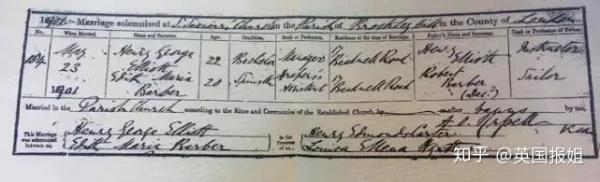 1901. Marriage solemnized at S. Saviour's Church in the Parish of Brockley Hill in the County of London
No. When Married. Name and Surname. Age. Condition. Rank or Profession. Residence at the time of Marriage. Father's Name and Surname. Rank or Profession of Father.
184 May 23 1901 Henry George Elliott 22 Bachelor Manager Henry Elliott
Edith Maria Barber 20 Spinster Draper's Assistant Robert Barber (Dec.) Sailor
Married in the Parish Church according to the Rites and Ceremonies of the Established Church, by after Banns by me,
This Marriage was solemnized between us, Henry George Elliott Edith Maria Barber in the Presence of us, Henry Edmond Carter Louisa
知乎 @英国报姐